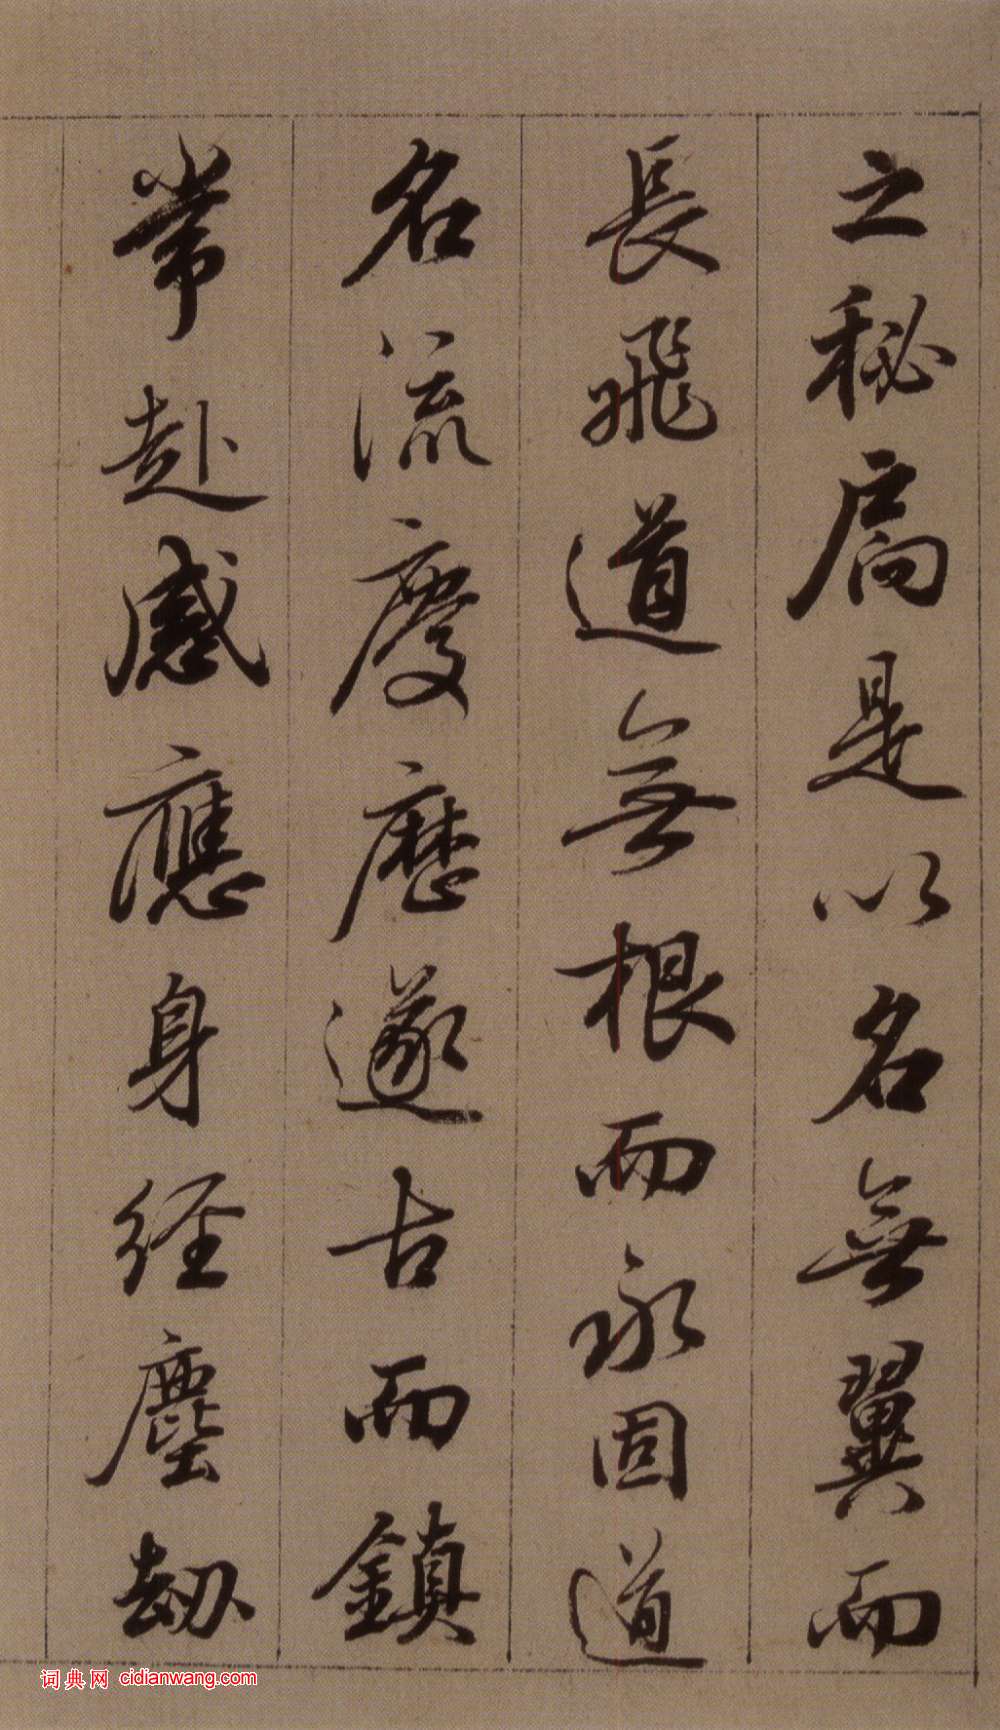 之秘扄是以名無翼而
長飛道無根而永固道
名流慶歷遂古而鎮
常赴感應身經塵劫
词典网 cidianwang.com